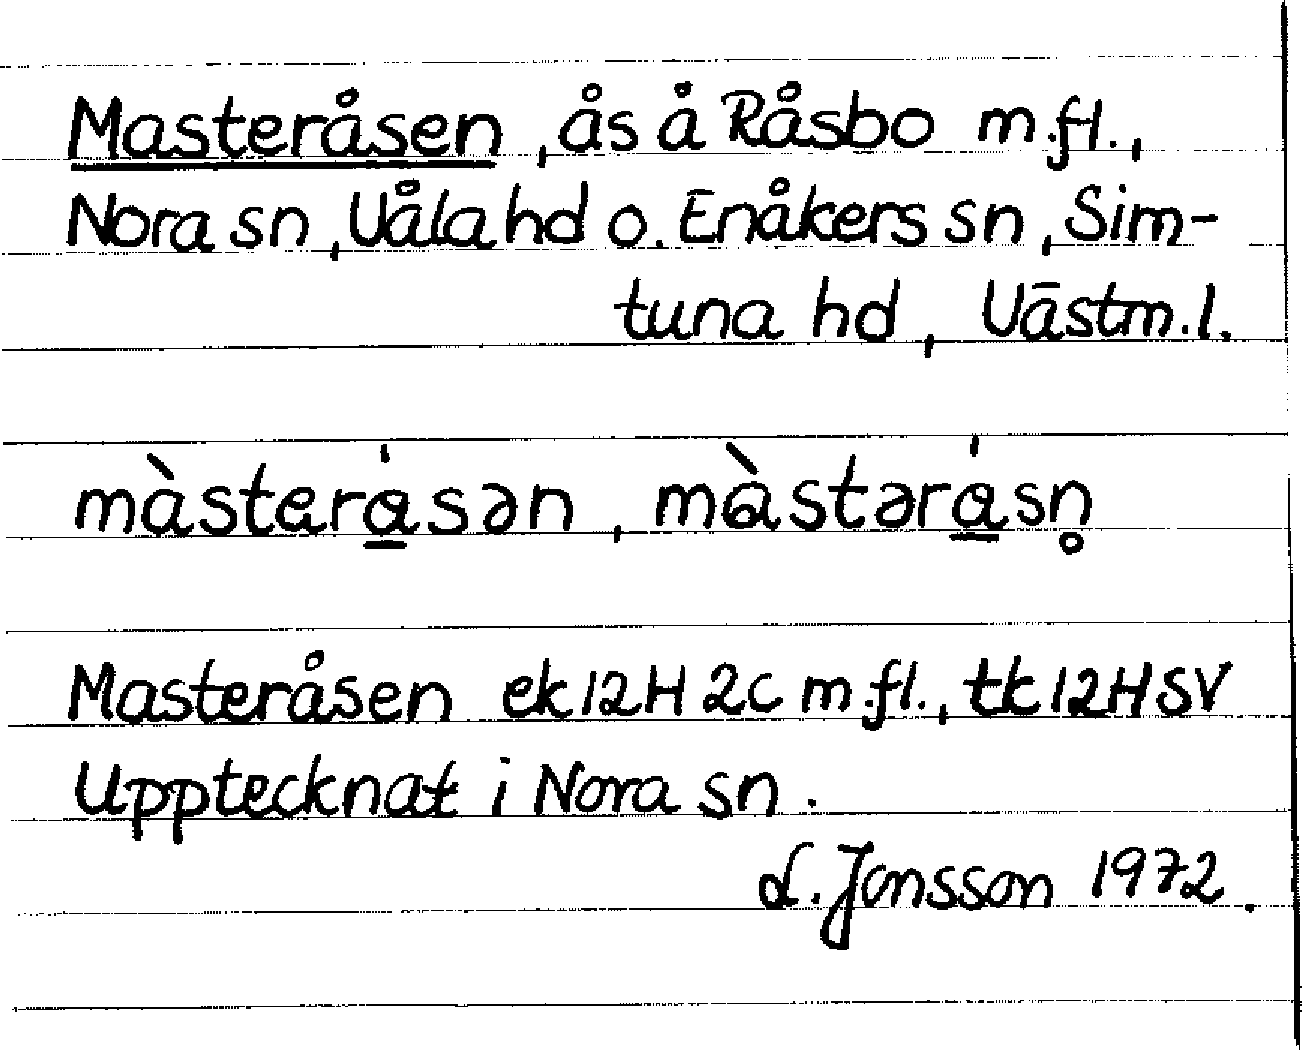 Masteråsen, ås å Råsbo m.fl.,
Nora sn, Våla hd o. Enåkers sn, Sim-
tuna hd, Västm.l.
màsterа̲́sən, mɑ̀stərа̲́sn̥
Masteråsen ek 12H 2c m.fl., tk 12H SV
Upptecknat i Nora sn.
L. Jonsson 1972.